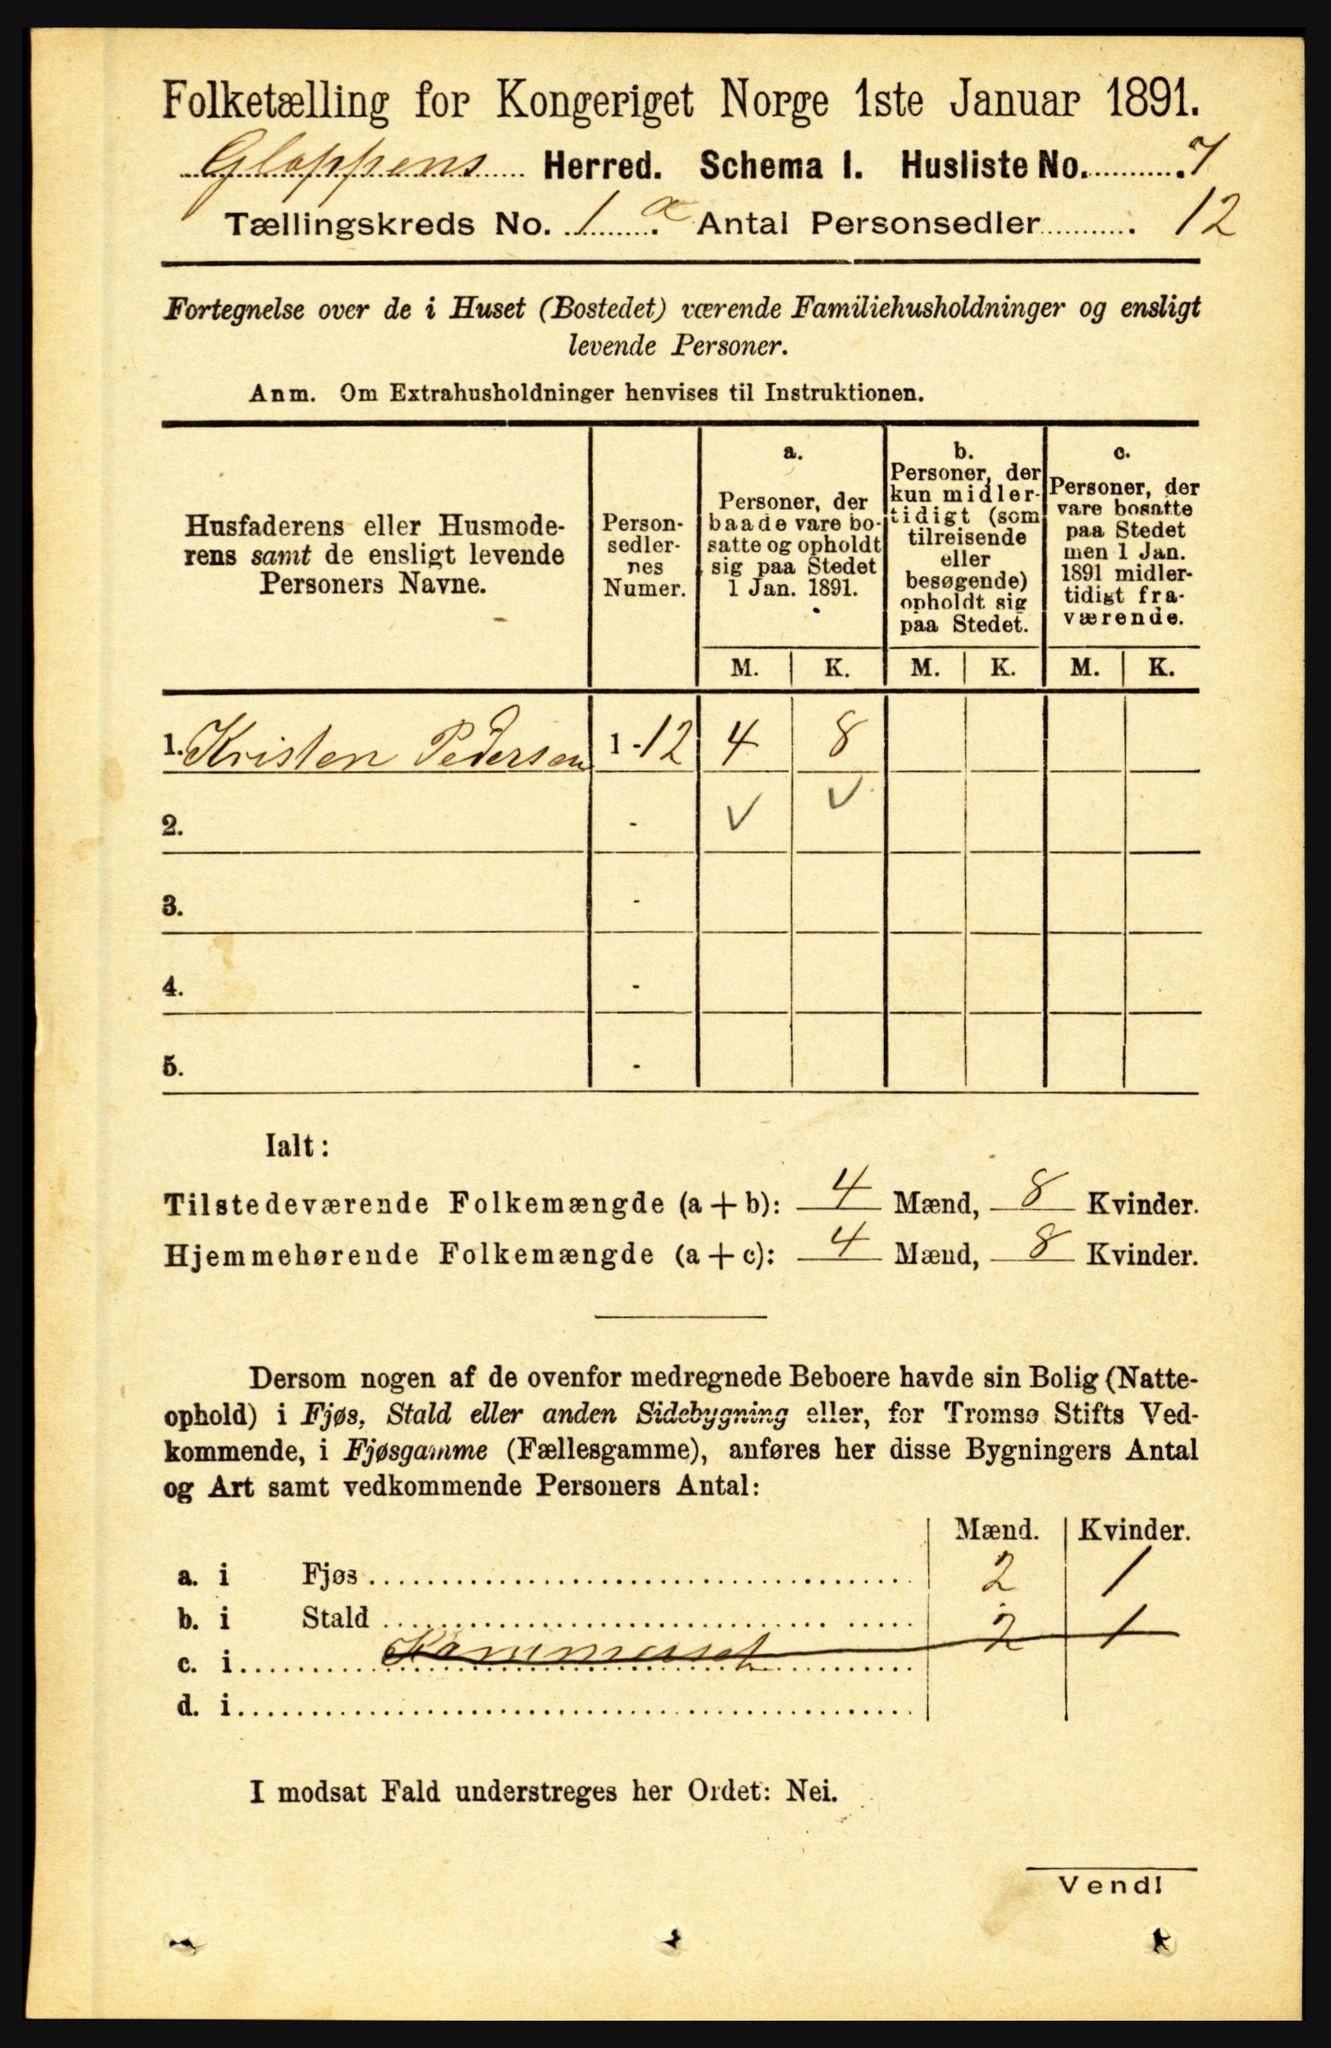 Folketælling for Kongeriget Norge 1ste Januar 1891.
Gloppens Herred. Schema I. Husliste No. 7
Tællingskreds No. 1 a. Antal Personsedler 12
Fortegnelse over de i Huset (Bostedet) værende Familiehusholdninger og ensligt
levende Personer.
Anm. Om Extrahusholdninger henvises til Instruktionen.
Husfaderens eller Husmode-
rens samt de ensligt levende
Personers Navne.
Person-
sedler-
nes
Numer.
a.
Personer, der
baade vare bo-
satte og opholdt
sig paa Stedet
1 Jan. 1891.
b.
Personer, der
kun midler-
tidigt (som
tilreisende
eller
besøgende)
opholdt sig
paa Stedet.
c.
Personer, der
vare bosatte
paa Stedet
men 1 Jan.
1891 midler-
tidigt fra-
værende.
M. K. M. K. M. K.
1. Kristen Pedersen 1 - 12 4 8
2. - V V
3. -
4. -
5. -
Ialt:
Tilstedeværende Folkemængde (a + b): 4 Mænd, 8 Kvinder.
Hjemmehørende Folkemængde (a + c): 4 Mænd, 8 Kvinder.
Dersom nogen af de ovenfor medregnede Beboere havde sin Bolig (Natte-
ophold) i Fjøs, Stald eller anden Sidebygning eller, for Tromsø Stifts Ved-
kommende, i Fjøsgamme (Fællesgamme), anføres her disse Bygningers Antal
og Art samt vedkommende Personers Antal:
Mænd. Kvinder.
a. i Fjøs 2 1
b. i Stald 2 1
c. i
d. i
I modsat Fald understreges her Ordet: Nei.
Vend!